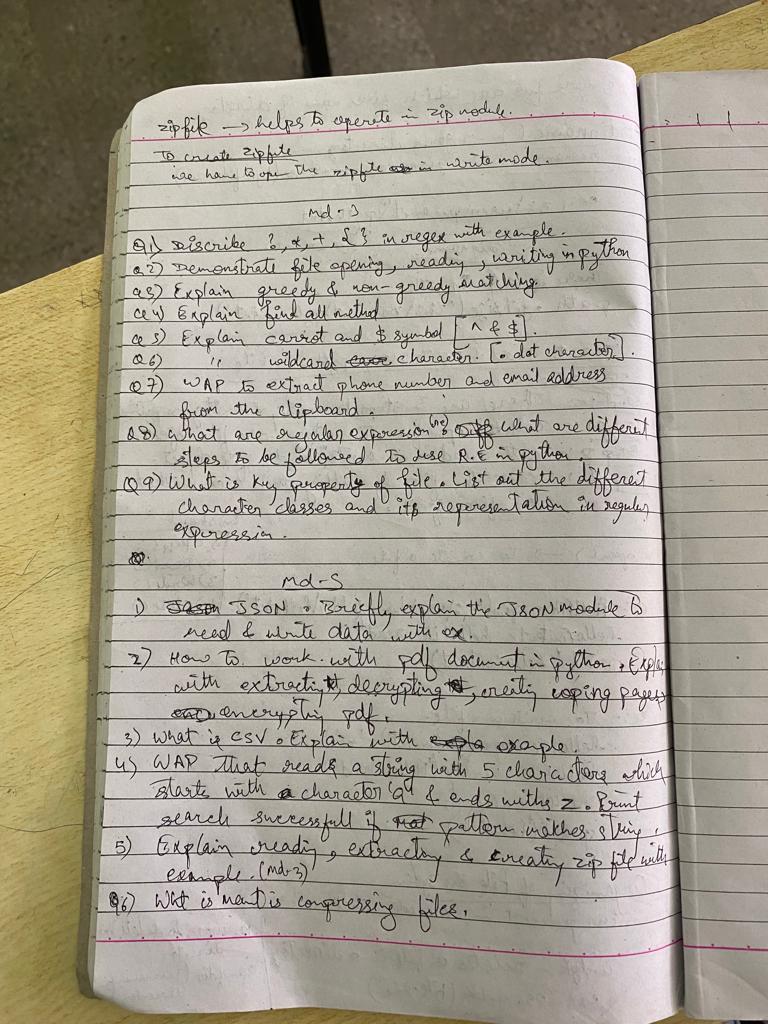 zipfile → helps to operate in zip module.
To create zipfile
we have to open the zipfile in write mode.
Md-3
Q1) Discribe ?, *, +, { } in regex with example.
Q2) Demonstrate file opening, reading, writing in python
Q3) Explain greedy & non-greedy matching.
Q4) Explain find all method
Q5) Explain carrot and $ symbol [ ^ & $ ].
Q6) " wildcard character. [. dot character].
Q7) WAP to extract phone number and email address
from the clipboard.
Q8) What are regular expression (re)? What are different
steps to be followed to use R.E in python.
Q9) What is key property of file. List out the different
character classes and its representation in regular
expression.
Md-5
1) JSON. Briefly explain the JSON module to
read & write data with ex.
2) How to work with pdf document in python. Explain
with extracting, decrypting, creatig coping pages,
encryptin pdf.
3) What is CSV. Explain with example.
4) WAP that reads a string with 5 characters which
starts with a character 'a' & ends with z. Print
search successfull if pattern matches string.
5) Explain readin, extracting & creating zip file with
example. (Md-3)
Q6) What is meant is compressing files.